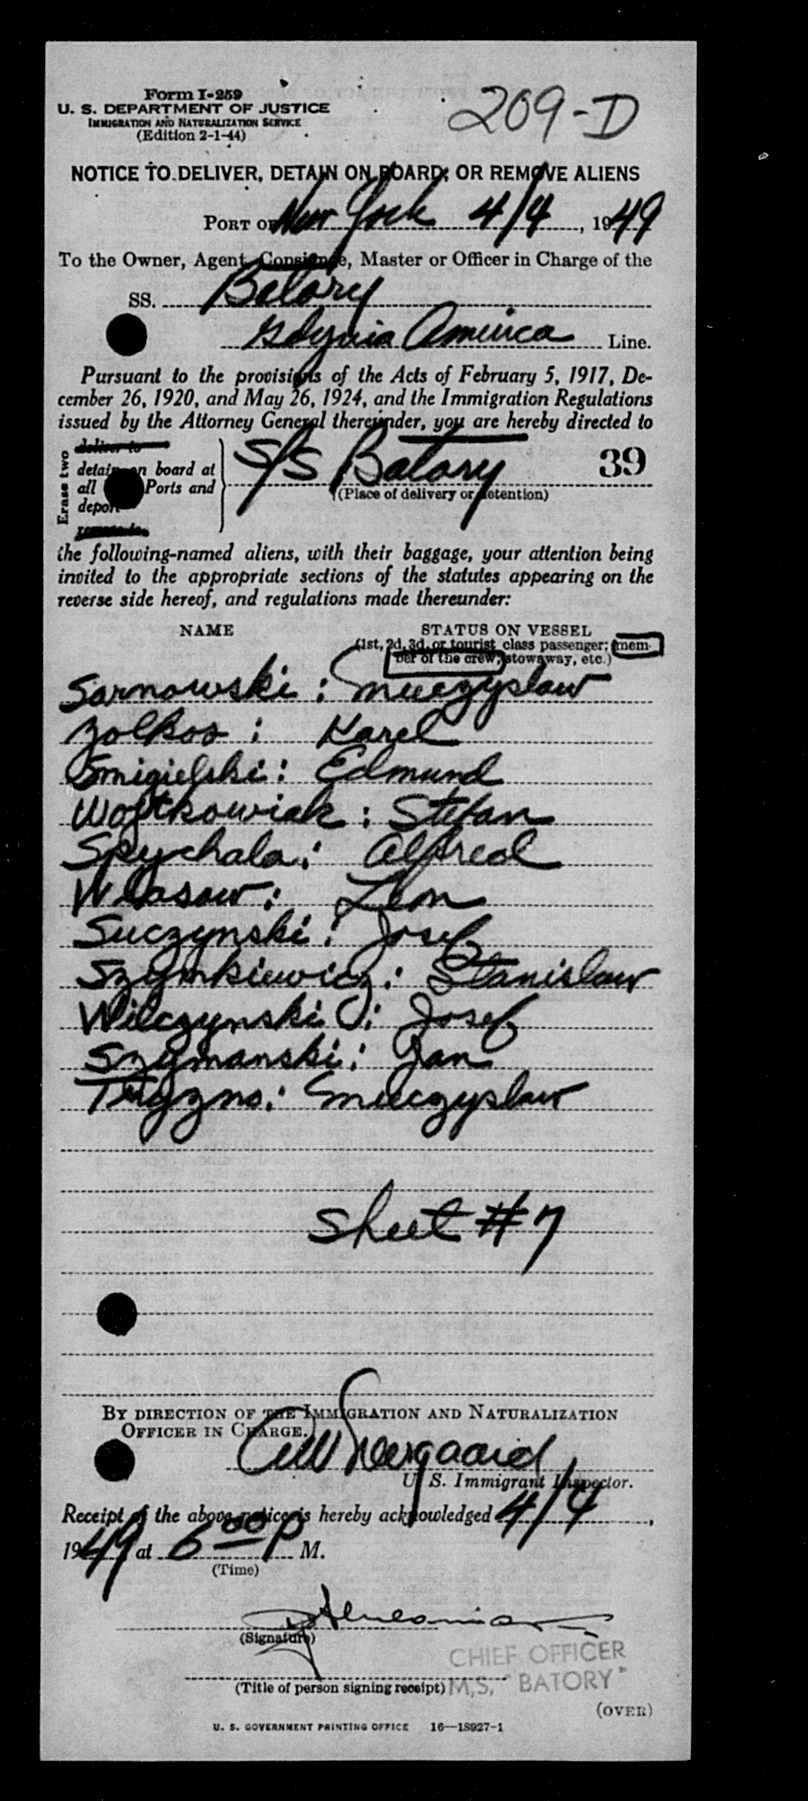 Form I-259
U. S. DEPARTMENT OF JUSTICE
IMMIGRATION AND NATURALIZATION SERVICE
(Edition 2-1-44)
209-D
NOTICE TO DELIVER, DETAIN ON BOARD, OR REMOVE ALIENS
PORT OF New York 4/4, 1949
To the Owner, Agent, Consignee, Master or Officer in Charge of the
SS. Batory
Gdynia America Line.
Pursuant to the provisions of the Acts of February 5, 1917, De-
cember 26, 1920, and May 26, 1924, and the Immigration Regulations
issued by the Attorney General thereunder, you are hereby directed to
Erase two
deliver to
detain on board at
all Ports and
deport
remove to
S/S Batory 39
(Place of delivery or detention)
the following-named aliens, with their baggage, your attention being
invited to the appropriate sections of the statutes appearing on the
reverse side hereof, and regulations made thereunder:
NAME STATUS ON VESSEL
(1st, 2d, 3d, or tourist class passenger; mem-
ber of the crew, stowaway, etc.)
Sarnowski : Mieczyslaw
Zolkos : Karel
Smigielski : Edmund
Wojtkowiak : Stefan
Spychala : Alfred
Wlasow : Leon
Suczynski : Josef
Szymkiewicz : Stanislaw
Wilczynski : Josef
Szymanski : Jan
Tryzno : Mieczyslaw
Sheet #7
BY DIRECTION OF THE IMMIGRATION AND NATURALIZATION
OFFICER IN CHARGE.
U. S. Immigrant Inspector.
Receipt of the above notice is hereby acknowledged 4/4,
1949 at 6 00 P M.
(Time)
(Signature)
CHIEF OFFICER
(Title of person signing receipt) M,S, "BATORY"
(OVER)
U. S. GOVERNMENT PRINTING OFFICE 16—18927-1